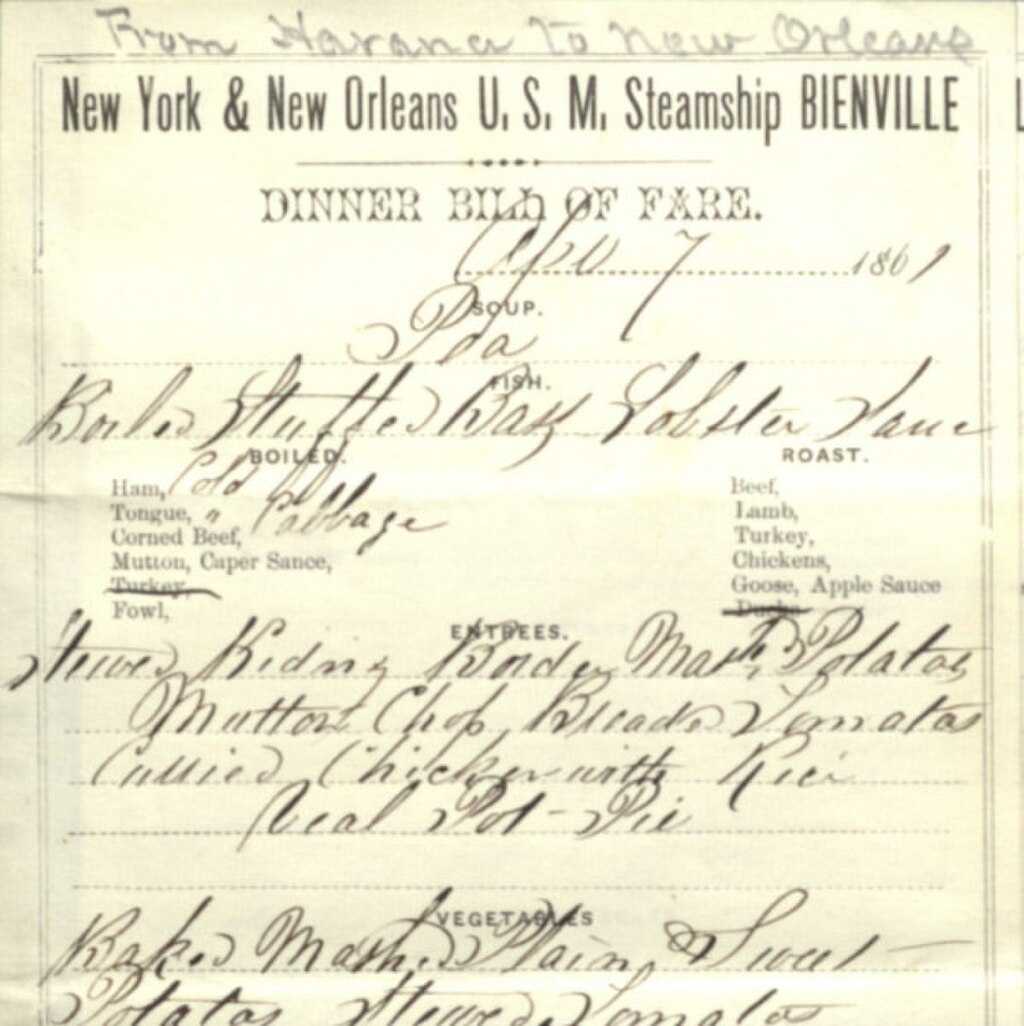 From Havana to New Orleans
New York & New Orleans U. S. M. Steamship BIENVILLE
DINNER BILL OF FARE.
Apl 7 1861
SOUP.
Pea
FISH.
Boiled Stuffed Bass Lobster Sauce
BOILED.
Ham, Cold
Tongue, "
Corned Beef, Cabbage
Mutton, Caper Sauce,
Turkey,
Fowl,
ROAST.
Beef,
Lamb,
Turkey,
Chickens,
Goose, Apple Sauce
Ducks
ENTREES.
Stewed Kidny Border Mashd Potatos
Mutton Chop Breaded Tomatos
Curried Chicken with Rice
Veal Pot-Pie
VEGETABLES
Baked Mashed Plain & Sweet
Potatos Stewed Tomatos